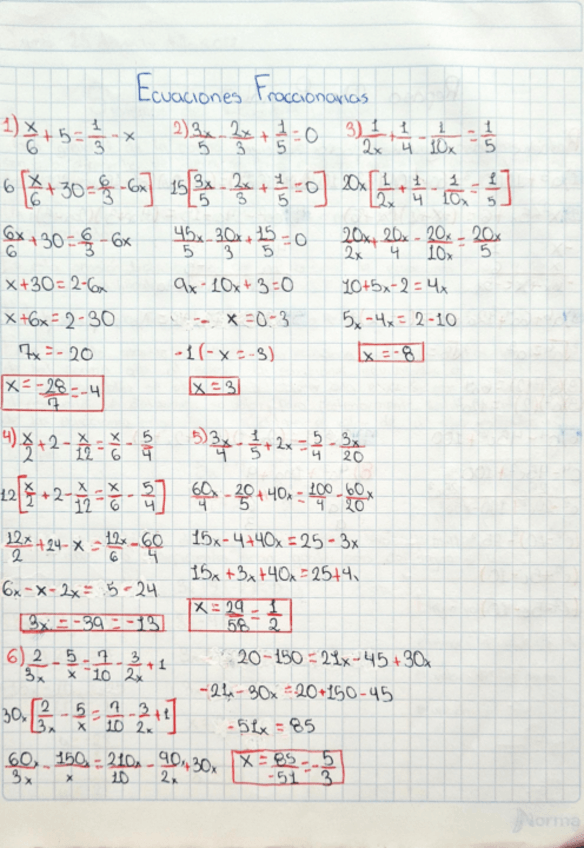 Ecuaciones Fraccionarias
1) x/6 + 5 = 1/3 - x
6 [x/6 + 30 = 6/3 - 6x]
6x/6 + 30 = 6/3 - 6x
x + 30 = 2 - 6x
x + 6x = 2 - 30
7x = - 20
x = -28/7 = -4
2) 3x/5 - 2x/3 + 1/5 = 0
15 [3x/5 - 2x/3 + 1/5 = 0]
45x/5 - 30x/3 + 15/5 = 0
9x - 10x + 3 = 0
- x = 0 - 3
-1 (-x = -3)
x = 3
3) 1/2x + 1/4 - 1/10x = 1/5
20x [1/2x + 1/4 - 1/10x = 1/5]
20x/2x + 20x/4 - 20x/10x = 20x/5
10 + 5x - 2 = 4x
5x - 4x = 2 - 10
x = -8
4) x/2 + 2 - x/12 = x/6 - 5/4
12 [x/2 + 2 - x/12 = x/6 - 5/4]
12x/2 + 24 - x = 12x/6 - 60/4
6x - x - 2x = 5 - 24
3x = -39 = -13
5) 3x/4 - 1/5 + 2x = 5/4 - 3x/20
60x/4 - 20/5 + 40x = 100/4 - 60x/20
15x - 4 + 40x = 25 - 3x
15x + 3x + 40x = 25 + 4
x = 29/58 = 1/2
6) 2/3x - 5/x = 7/10 - 3/2x + 1
30x [2/3x - 5/x = 7/10 - 3/2x + 1]
60x/3x - 150x/x = 210x/10 - 90x/2x + 30x
20 - 150 = 21x - 45 + 30x
-21x - 30x = 20 + 150 - 45
-51x = 85
x = 85/-51 = -5/3
Norma